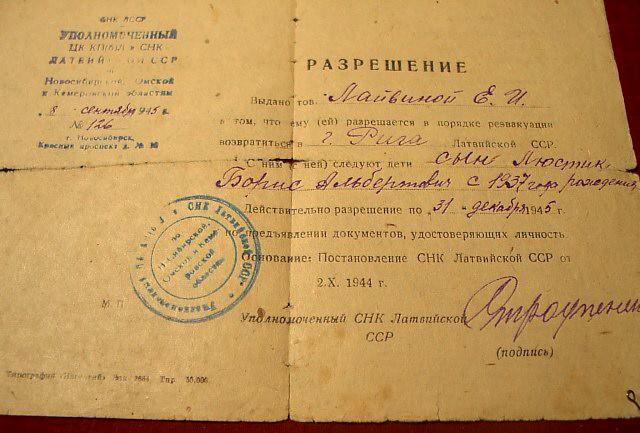 СНК ЛССР
УПОЛНОМОЧЕННЫЙ
ЦК КП(б)Л и СНК
ЛАТВИЙСКОЙ ССР
по
Новосибирской, Омской
и Кемеровской областям
„8 сентября 1945 г.
№ 126
г. Новосибирск,
Красный проспект д. №
РАЗРЕШЕНИЕ
Выдано тов. Лайвиной Е. И.
в том, что ему (ей) разрешается в порядке реэвакуации
возвратиться в г. Рига Латвийской ССР.
С ним (с ней) следуют дети сын Люстик
Борис Альбертович с 1937 года рождения
Действительно разрешение по „31 декабря 1945 г.
по предъявлении документов, удостоверяющих личность.
Основание: Постановление СНК Латвийской ССР от
2.X. 1944 г.
Уполномоченный СНК Латвийской ССР
по
Новосибирской,
Омской и Кеме-
ровской
областям
М. П.
Уполномоченный СНК Латвийской
ССР
(подпись)
Типография Зак. 2664 Тир. 30.000